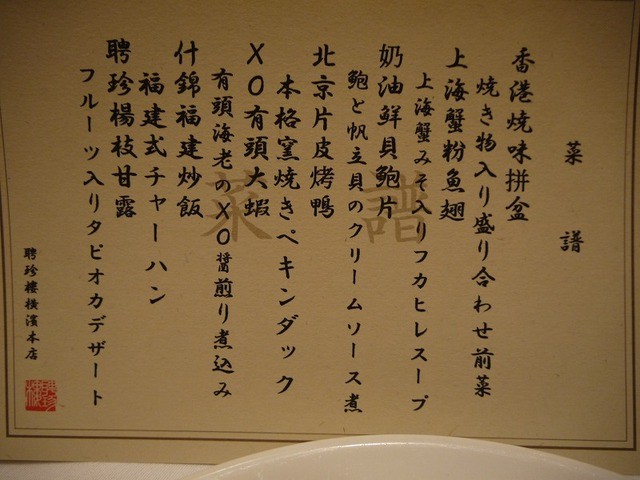 菜譜
香港燒味拼盆
焼き物入り盛り合わせ前菜
上海蟹粉魚翅
上海蟹みそ入りフカヒレスープ
奶油鮮貝鮑片
鮑と帆立貝のクリームソース煮
北京片皮烤鴨
本格窯焼きペキンダック
XO有頭大蝦
有頭海老のXO醤煎り煮込み
什錦福建炒飯
福建式チャーハン
聘珍楊枝甘露
フルーツ入りタピオカデザート
聘珍樓横濱本店
菜譜